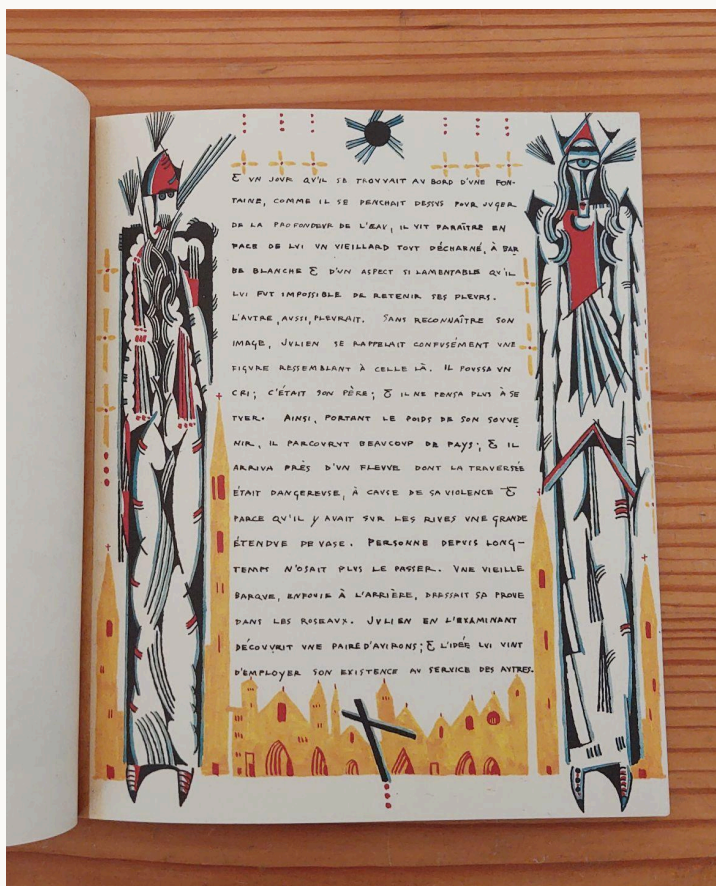 & VN JOUR QV'IL SE TROVVAIT AV BORD D'VNE FON-
TAINE, COMME IL SE PENCHAIT DESSVS POVR JVGER
DE LA PROFONDEVR DE L'EAV, IL VIT PARAÎTRE EN
FACE DE LVI VN VIEILLARD TOVT DÉCHARNÉ, À BAR
BE BLANCHE & D'VN ASPECT SI LAMENTABLE QV'IL
LVI FVT IMPOSSIBLE DE RETENIR SES PLEVRS.
L'AVTRE, AVSSI, PLEVRAIT. SANS RECONNAÎTRE SON
IMAGE, JVLIEN SE RAPPELAIT CONFVSÉMENT VNE
FIGVRE RESSEMBLANT À CELLE LÀ. IL POVSSA VN
CRI; C'ÉTAIT SON PÈRE; & IL NE PENSA PLVS À SE
TVER. AINSI, PORTANT LE POIDS DE SON SOVVE
NIR, IL PARCOVRVT BEAVCOVP DE PAYS; & IL
ARRIVA PRÈS D'VN FLEVVE DONT LA TRAVERSÉE
ÉTAIT DANGEREVSE, À CAVSE DE SA VIOLENCE &
PARCE QV'IL Y AVAIT SVR LES RIVES VNE GRANDE
ÉTENDVE DE VASE. PERSONNE DEPVIS LONG-
TEMPS N'OSAIT PLVS LE PASSER. VNE VIEILLE
BARQVE, ENFOVIE À L'ARRIÈRE, DRESSAIT SA PROVE
DANS LES ROSEAVX. JVLIEN EN L'EXAMINANT
DÉCOVVRIT VNE PAIRE D'AVIRONS; & L'IDÉE LVI VINT
D'EMPLOYER SON EXISTENCE AV SERVICE DES AVTRES.